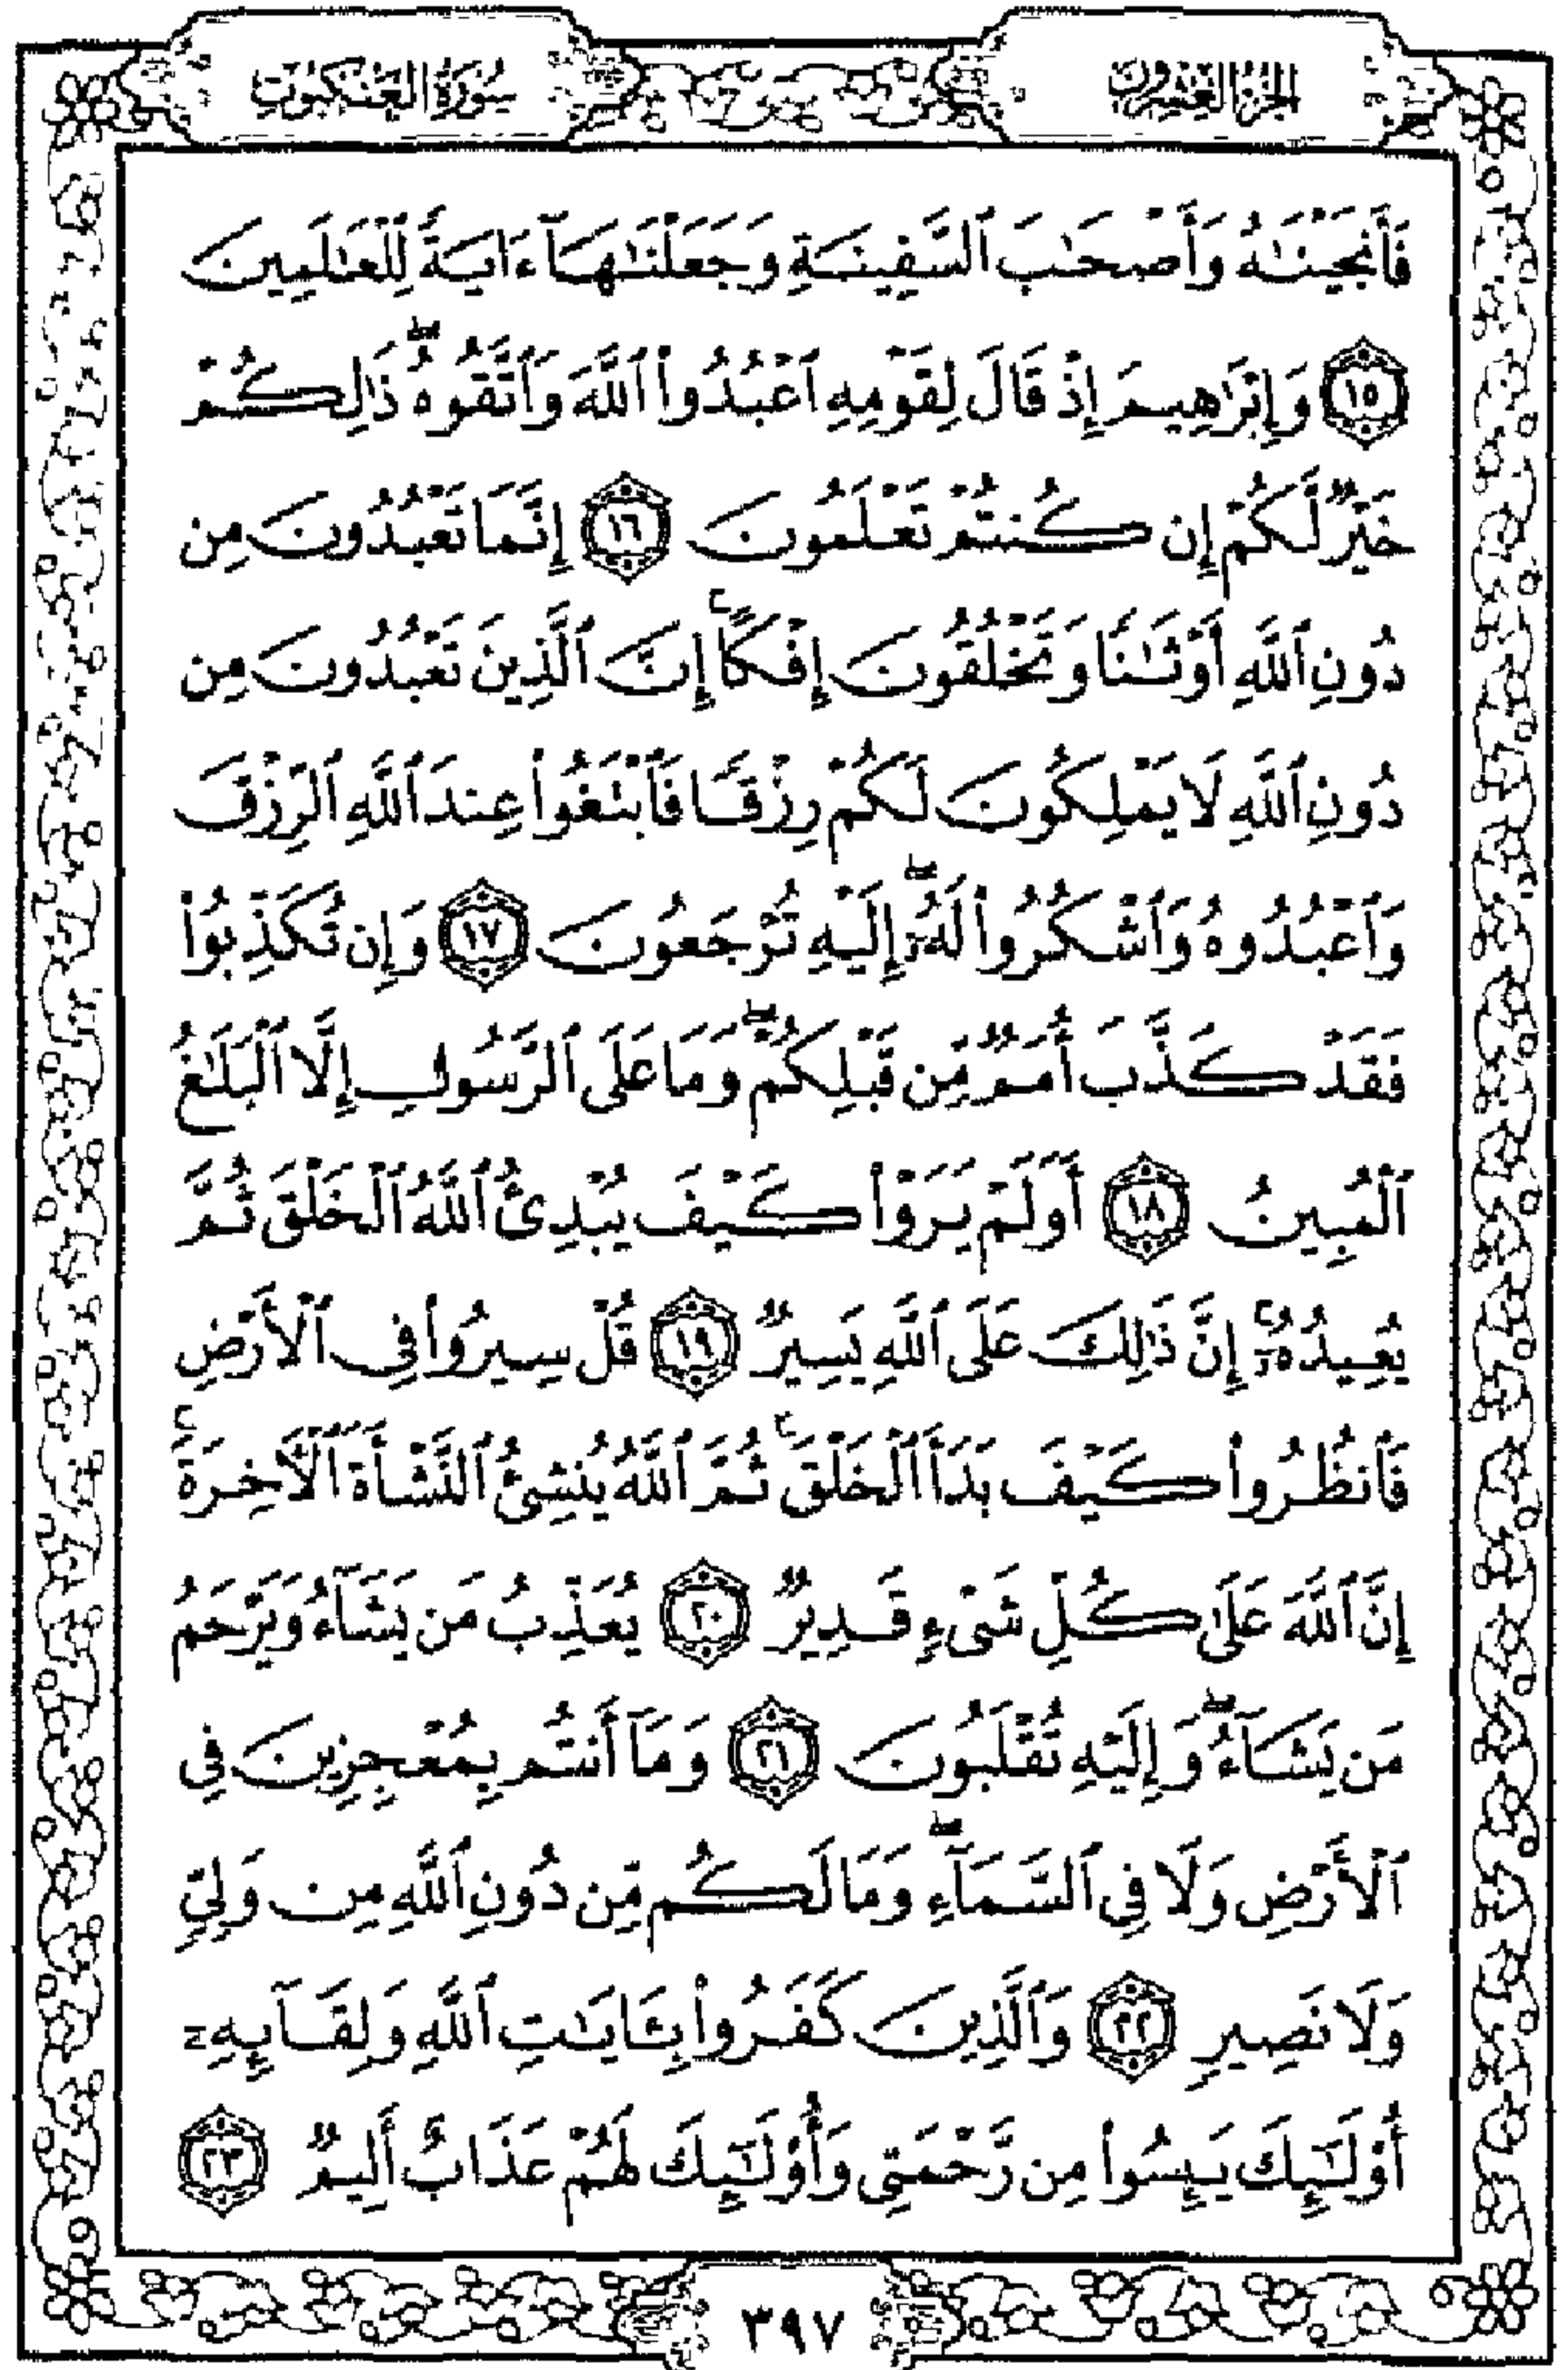 الجزء العشرون
سورة العنكبوت
فَأَنجَيْنَٰهُ وَأَصْحَٰبَ ٱلسَّفِينَةِ وَجَعَلْنَٰهَآ ءَايَةً لِّلْعَٰلَمِينَ
١٥ وَإِبْرَٰهِيمَ إِذْ قَالَ لِقَوْمِهِ ٱعْبُدُوا۟ ٱللَّهَ وَٱتَّقُوهُ ۖ ذَٰلِكُمْ
خَيْرٌ لَّكُمْ إِن كُنتُمْ تَعْلَمُونَ ١٦ إِنَّمَا تَعْبُدُونَ مِن
دُونِ ٱللَّهِ أَوْثَٰنًا وَتَخْلُقُونَ إِفْكًا ۚ إِنَّ ٱلَّذِينَ تَعْبُدُونَ مِن
دُونِ ٱللَّهِ لَا يَمْلِكُونَ لَكُمْ رِزْقًا فَٱبْتَغُوا۟ عِندَ ٱللَّهِ ٱلرِّزْقَ
وَٱعْبُدُوهُ وَٱشْكُرُوا۟ لَهُۥٓ ۖ إِلَيْهِ تُرْجَعُونَ ١٧ وَإِن تُكَذِّبُوا۟
فَقَدْ كَذَّبَ أُمَمٌ مِّن قَبْلِكُمْ ۖ وَمَا عَلَى ٱلرَّسُولِ إِلَّا ٱلْبَلَٰغُ
ٱلْمُبِينُ ١٨ أَوَلَمْ يَرَوْا۟ كَيْفَ يُبْدِئُ ٱللَّهُ ٱلْخَلْقَ ثُمَّ
يُعِيدُهُۥٓ ۚ إِنَّ ذَٰلِكَ عَلَى ٱللَّهِ يَسِيرٌ ١٩ قُلْ سِيرُوا۟ فِى ٱلْأَرْضِ
فَٱنظُرُوا۟ كَيْفَ بَدَأَ ٱلْخَلْقَ ۚ ثُمَّ ٱللَّهُ يُنشِئُ ٱلنَّشْأَةَ ٱلْءَاخِرَةَ ۚ
إِنَّ ٱللَّهَ عَلَىٰ كُلِّ شَىْءٍ قَدِيرٌ ٢٠ يُعَذِّبُ مَن يَشَآءُ وَيَرْحَمُ
مَن يَشَآءُ ۖ وَإِلَيْهِ تُقْلَبُونَ ٢١ وَمَآ أَنتُم بِمُعْجِزِينَ فِى
ٱلْأَرْضِ وَلَا فِى ٱلسَّمَآءِ ۖ وَمَا لَكُم مِّن دُونِ ٱللَّهِ مِن وَلِىٍّ
وَلَا نَصِيرٍ ٢٢ وَٱلَّذِينَ كَفَرُوا۟ بِـَٔايَٰتِ ٱللَّهِ وَلِقَآئِهِۦٓ
أُو۟لَٰٓئِكَ يَئِسُوا۟ مِن رَّحْمَتِى وَأُو۟لَٰٓئِكَ لَهُمْ عَذَابٌ أَلِيمٌ ٢٣
٣٩٧